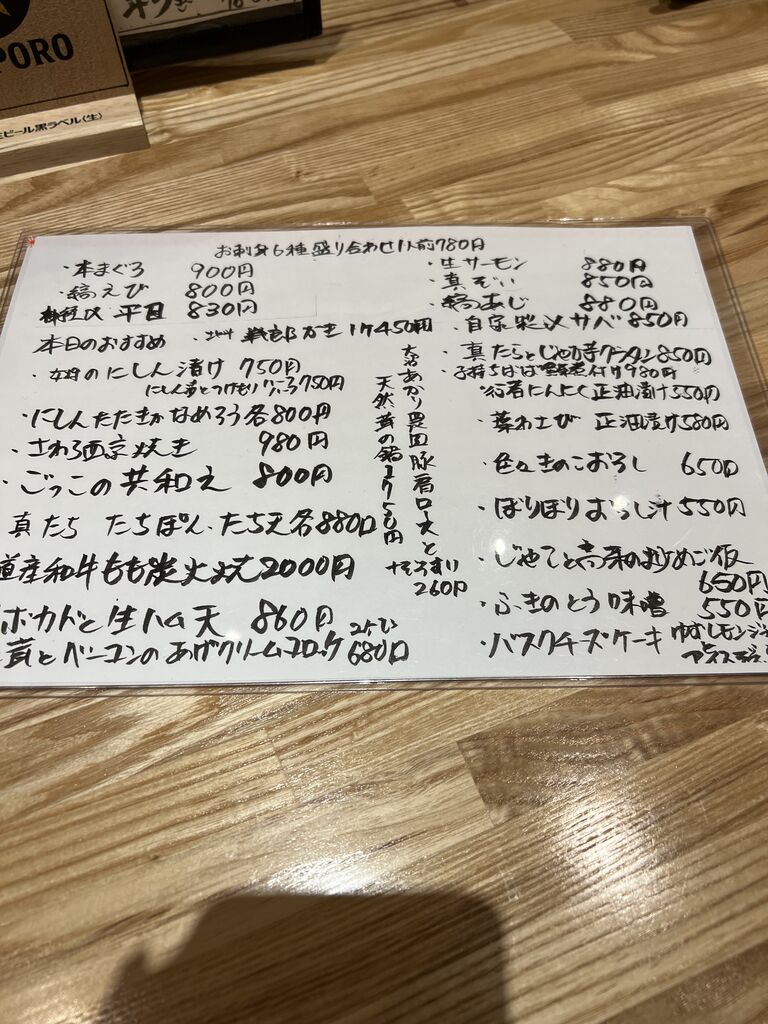 PORO
生ビール黒ラベル(生)
お刺身6種盛り合わせ1人前780円
・本まぐろ 900円
・縞えび 800円
平目 830円
・生サーモン 880円
・真ぞい 850円
・縞あじ 880円
・自家製〆サバ 850円
本日のおすすめ
450円
・のにしん漬け 750円
750円
・にしんたたきかなめろう各800円
・さわら西京焼き 980円
・ごっこの共和え 800円
真たち たちぽん、たち天各880円
道産和牛もも炭火焼2000円
ボカドと生ハム天 860円
茸とベーコンのあげクリームコロッケ 680円
あかり農園豚肩ロースと
天然茸の鍋
260円
・真たらとじゃが芋グラタン850円
・子持ちはば 煮付け980円
・行者にんにく正油漬け550円
・葉わさび 正油漬け580円
・色々きのこおろし 650円
・ぽりぽりおろし汁 550円
・じゃことの炒めご飯
650円
・ふきのとう味噌 550円
・バスクチーズケーキ